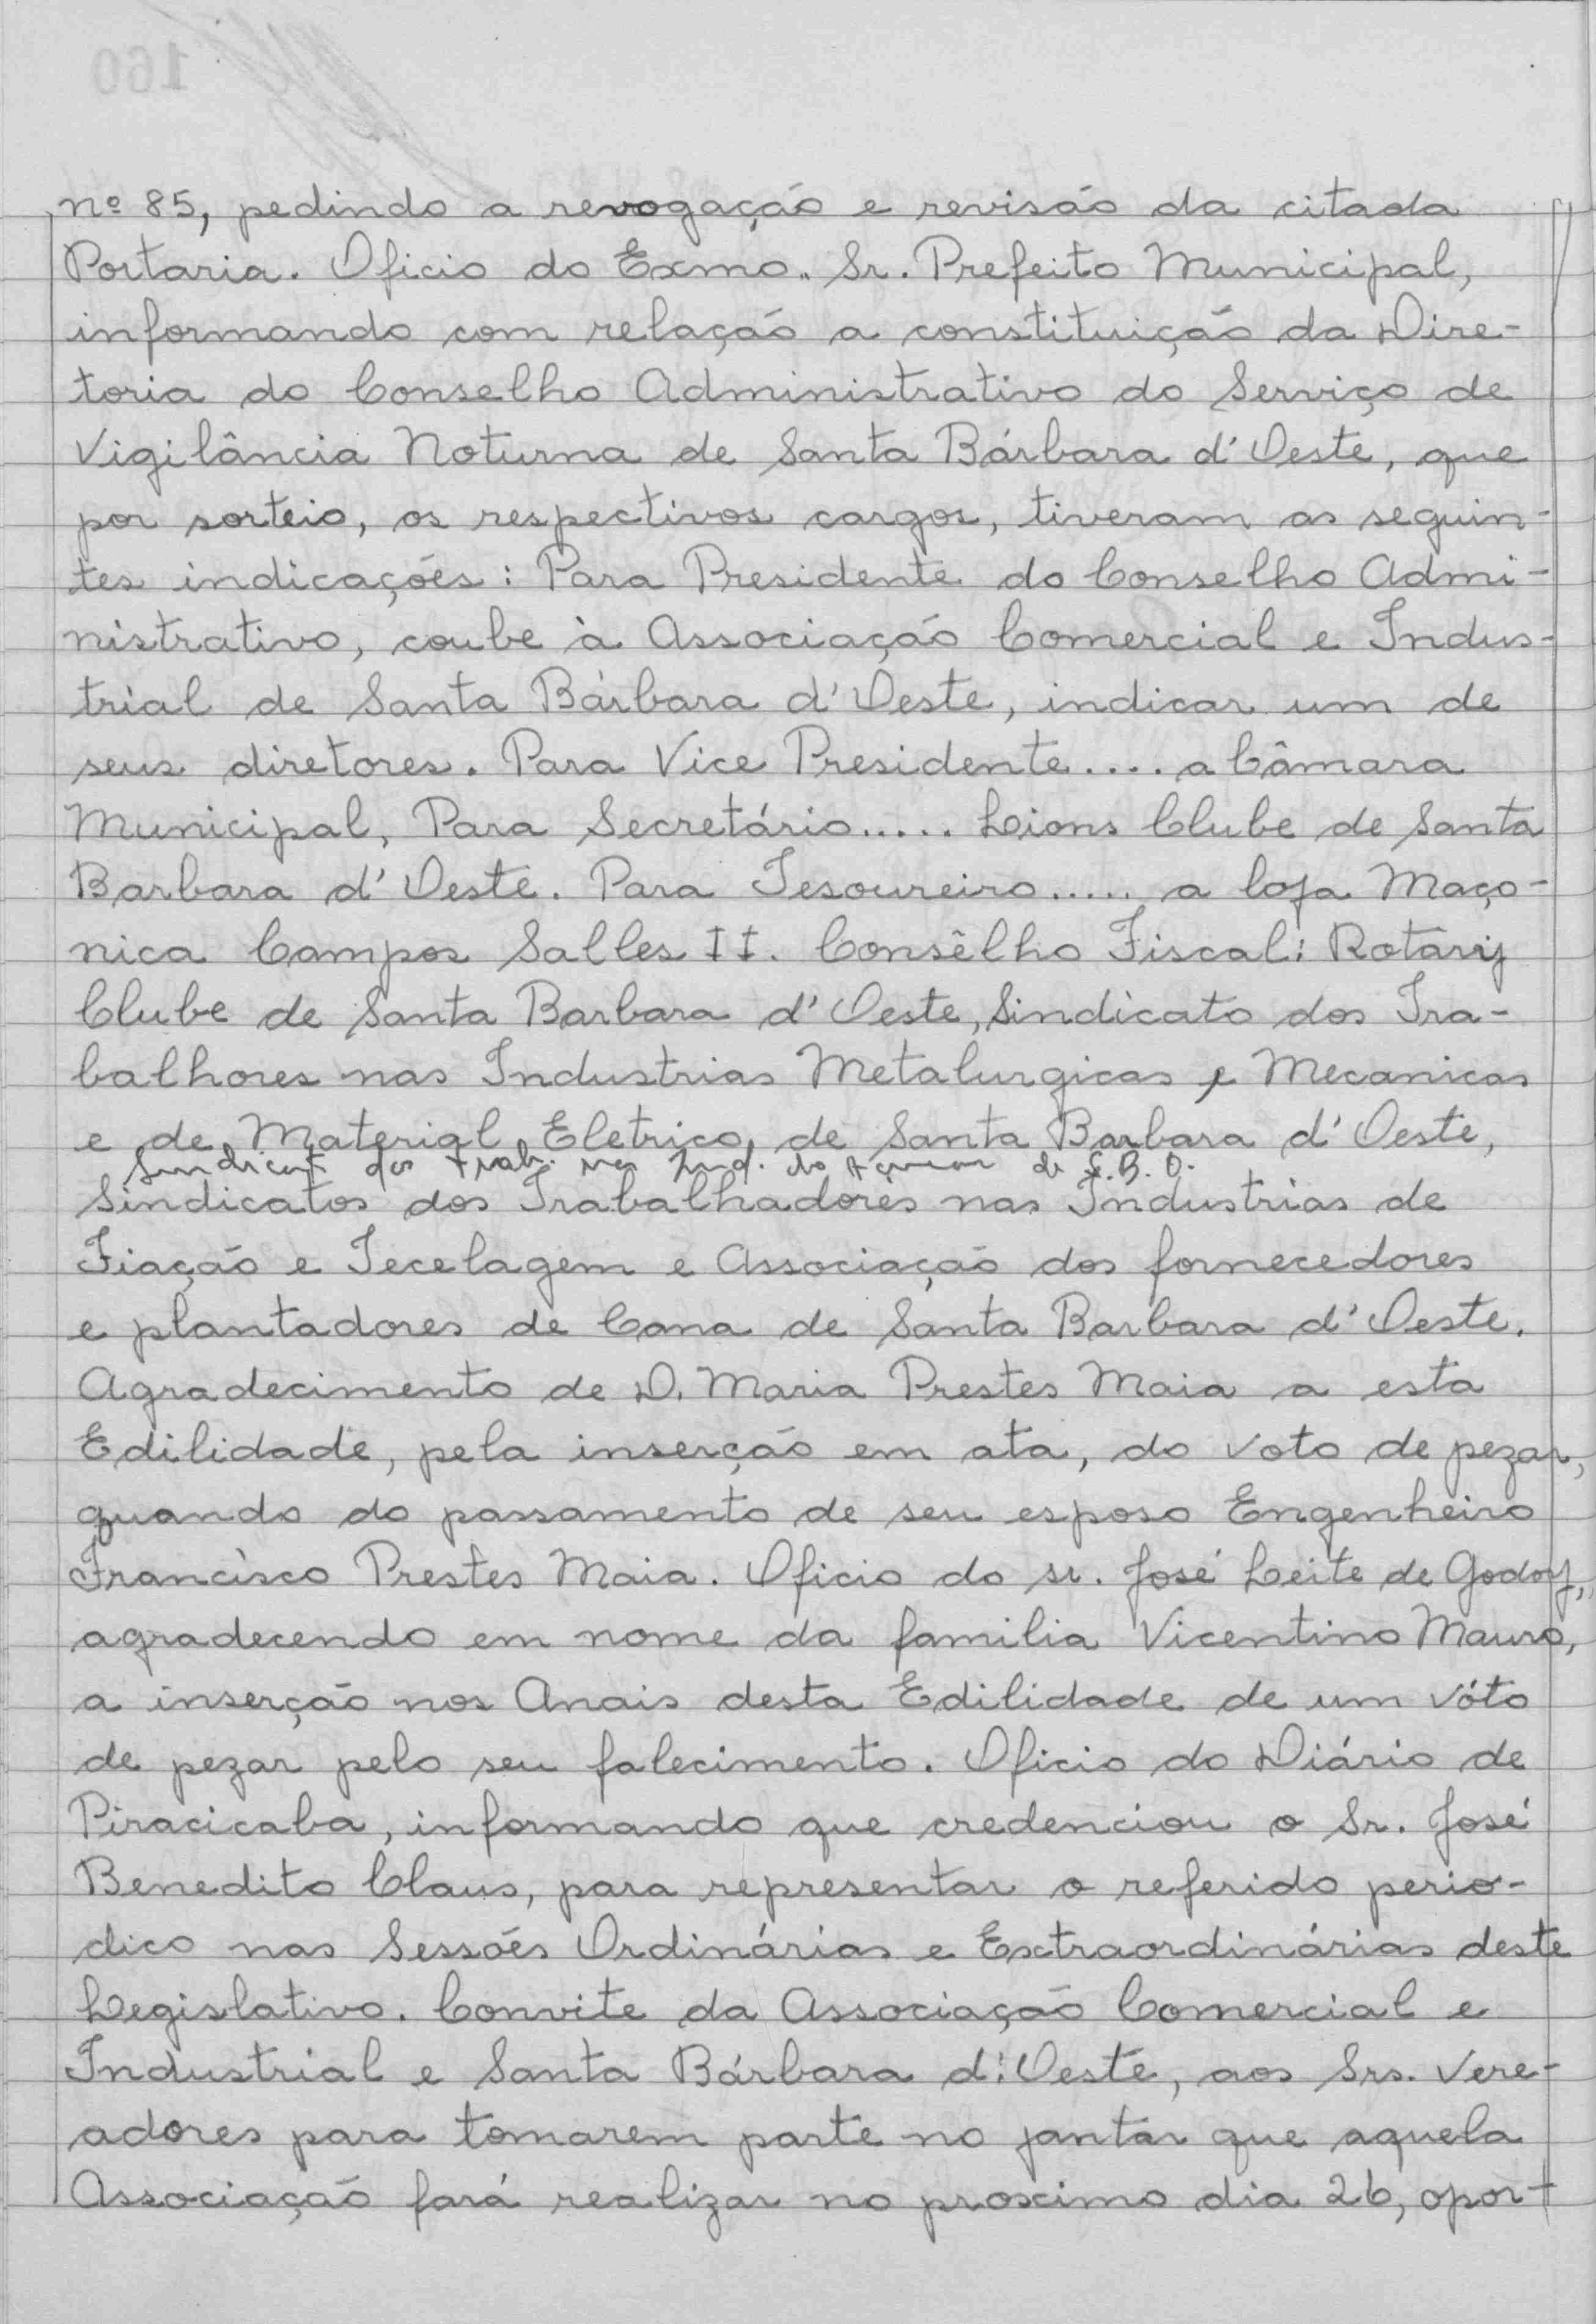 nº 85, pedindo a revogação e revisão da citada
Portaria. Oficio do Exmo. Sr. Prefeito Municipal,
informando com relação a constituição da Dire-
toria do Conselho Administrativo do Serviço de
Vigilância Noturna de Santa Bárbara d'Oeste, que
por sorteio, os respectivos cargos, tiveram as seguin-
tes indicações: Para Presidente do Conselho Admi-
nistrativo, coube à Associação Comercial e Indus-
trial de Santa Bárbara d'Oeste, indicar um de
seus diretores. Para Vice Presidente.... a Câmara
Municipal, Para Secretário..... Lions Clube de Santa
Barbara d'Oeste. Para Tesoureiro..... a loja Maço-
nica Campos Salles II. Consêlho Fiscal: Rotary
Clube de Santa Barbara d'Oeste, Sindicato dos Tra-
balhores nas Industrias Metalurgicas e Mecanicas
e de Material Eletrico, de Santa Barbara d'Oeste,
Sindicat dos trab. nas Ind. do de S.B.O.
Sindicatos dos Trabalhadores nas Industrias de
Fiação e Tecelagem e Associação dos fornecedores
e plantadores de Cana de Santa Barbara d'Oeste.
Agradecimento de D. Maria Prestes Maia a esta
Edilidade, pela inserção em ata, do voto de pezar,
quando do passamento de seu esposo Engenheiro
Francisco Prestes Maia. Oficio do sr. José Leite de Godoy,
agradecendo em nome da familia Vicentino Mauro,
a inserção nos Anais desta Edilidade de um vóto
de pezar pelo seu falecimento. Oficio do Diário de
Piracicaba, informando que credenciou o Sr. José
Benedito Claus, para representar o referido perio-
dico nas Sessões Ordinárias e Extraordinárias deste
Legislativo. Convite da Associação Comercial e
Industrial e Santa Bárbara d'Oeste, aos Srs. Vere-
adores para tomarem parte no jantar que aquela
Associação fará realizar no proximo dia 26, opor-